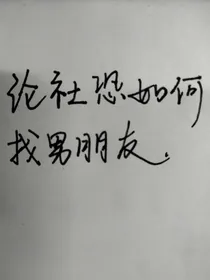 论社恐如何
找男朋友.